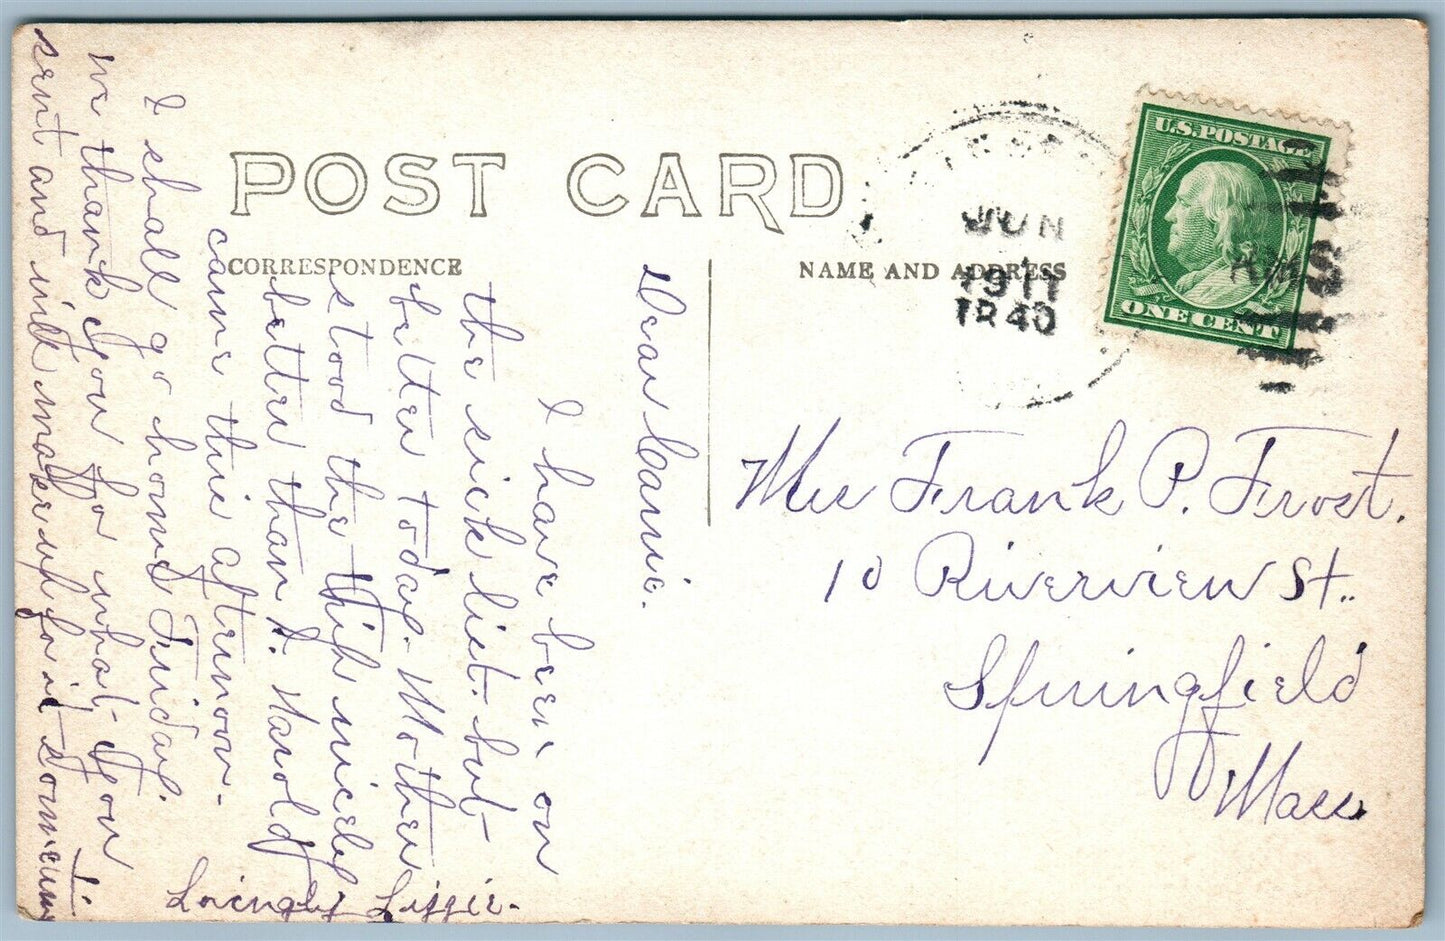 POST CARD
CORRESPONDENCE
NAME AND ADDRESS
U.S. POSTAGE
ONE CENT
JUN
1911
Dear Carrie.
I have been on
the sick list. but
better today. Mother
stood the trip nicely
better than I. Harold
came this afternoon.
I shall go home Friday.
we thank you for what you
sent and will make up for it sometime
Lovingly Lizzie.
Mrs Frank P. Frost.
10 Riverview St.
Springfield
Mass